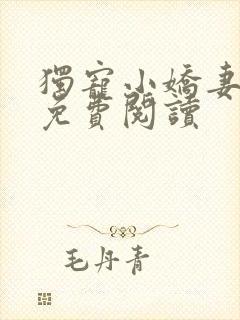 獨寵小嬌妻
免費閱讀
毛丹青